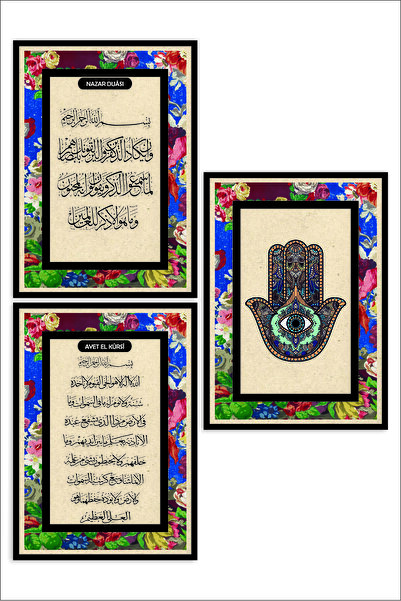 NAZAR DUÂSI
بسم الله الرحمن الرحيم
وإن يكاد الذين كفروا ليزلقونك بأبصارهم
لما سمعوا الذكر ويقولون إنه لمجنون
وما هو إلا ذكر للعالمين
AYET EL KÜRSİ
بسم الله الرحمن الرحيم
الله لا إله إلا هو الحي القيوم لا تأخذه
سنة ولا نوم له ما في السموات وما
في الأرض من ذا الذي يشفع عنده
إلا بإذنه يعلم ما بين أيديهم وما
خلفهم ولا يحيطون بشيء من علمه
إلا بما شاء وسع كرسيه السموات
والأرض ولا يؤده حفظهما وهو
العلي العظيم